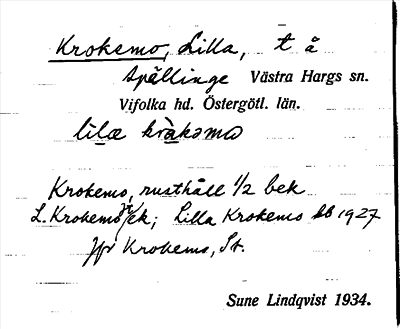 Krokemo, Lilla, t å
Spållinge Västra Hargs sn.
Vifolka hd. Östergötl. län.
lilæ kråkəmo
Krokemo, rusthåll 1/2 bek
L. Krokemo ek; Lilla Krokemo bb 1927
Jfr Krokemo, St.
Sune Lindqvist 1934.